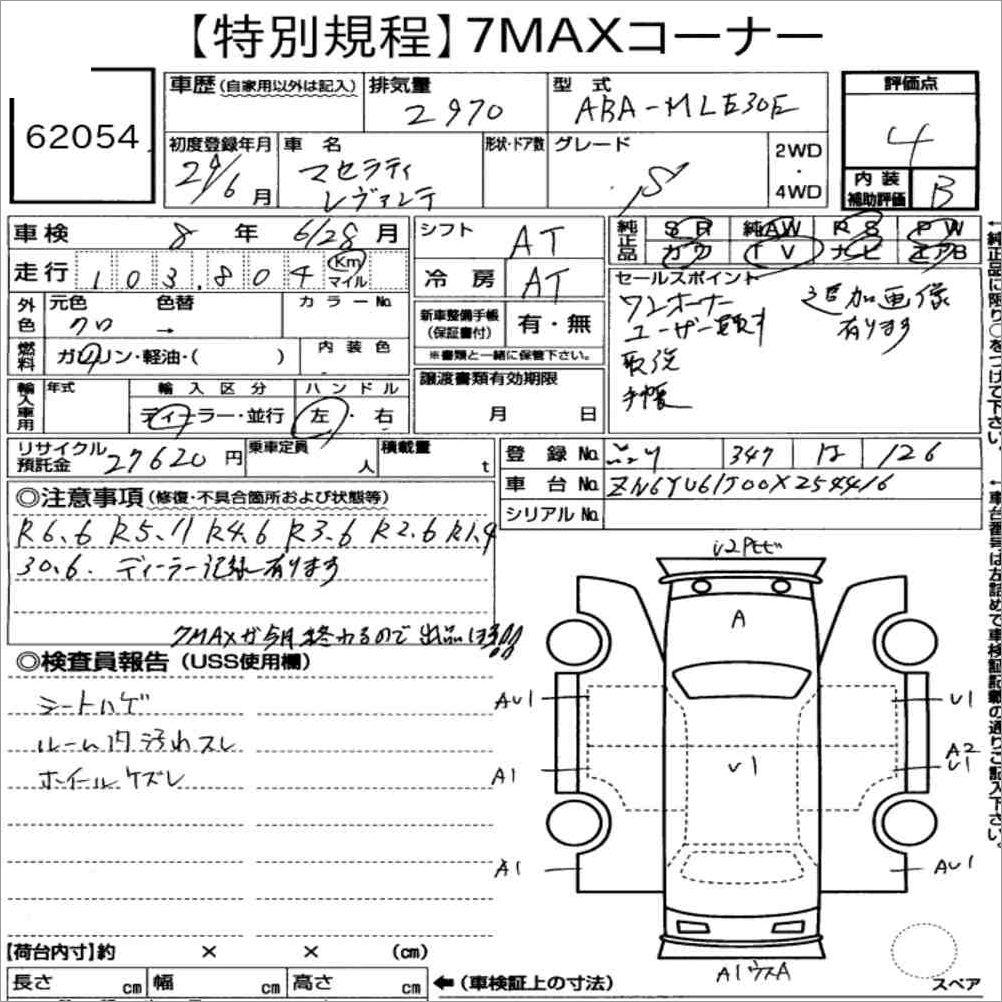 【特別規程】7MAXコーナー
62054
車歴(自家用以外は記入) 排気量 2970 型式 ABA-MLE30E
評価点 4
初度登録年月 29/6月 車名 マセラティ レヴァンテ 形状・ドア数 グレード S 2WD・4WD
内装補助評価 B
車検 8年 6/28月
シフト AT
純正品 SR 純AW RS PW
カワ TV ナビ エアB
走行 103,804 Km マイル
冷房 AT
外色 元色 クロ 色替 → カラーNo
新車整備手帳(保証書付) 有・無
※書類と一緒に保管下さい。
燃料 ガソリン・軽油・( ) 内装色
セールスポイント
ワンオーナー
ユーザー買取す
取説
手帳
追加画像
有ります
譲渡書類有効期限
月 日
輸入車用 年式 輸入区分 ハンドル
ディーラー・並行 左・右
リサイクル預託金 27620円 乗車定員 人 積載量 t
登録No 347 は 126
車台No ZN6YU61J00X254416
シリアルNo
◎注意事項(修復・不具合箇所および状態等)
R6.6 R5.11 R4.6 R3.6 R2.6 R1.9
30.6. ディーラー記録有ります
7MAXが今月終わるので出品は3!!
◎検査員報告(USS使用欄)
シートハゲ
ルーム内汚れスレ
ホイールケズレ
A
AU1
U1
A1
U1
A2
U1
A1
AU1
A1 ウスA
スペア
【荷台内寸】約 × × (cm)
長さ cm 幅 cm 高さ cm ←(車検証上の寸法)
←純正品に限り○をつけて下さい。
←車台番号は左詰めで車検証記載の通りご記入下さい。